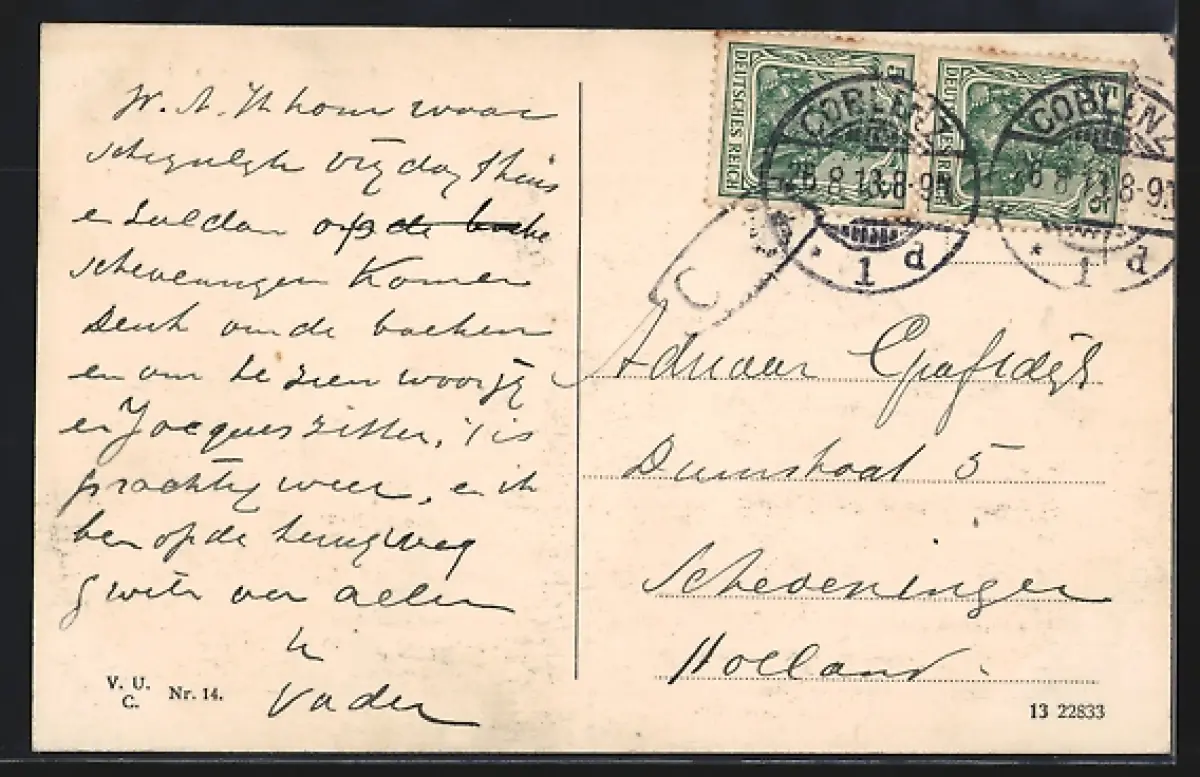 W. A. Ik kom waar
schijnlijk vrijdag thuis
en zal dan op de
Scheveningen Komen
Denk om de boeken
en om te zien
en Jacques zitten, 't is
prachtig weer, en ik
ben op de terugweg
van allen
Uw
Vader
V. U.
C.
Nr. 14.
DEUTSCHES REICH
5
DEUTSCHES REICH
5
COBLENZ
26 8.13.8-9N
* 1 d
COBLENZ
26 8.13.8-9N
* 1 d
C
Adriaan
Duinstraat 5
Scheveningen
Holland.
13 22833